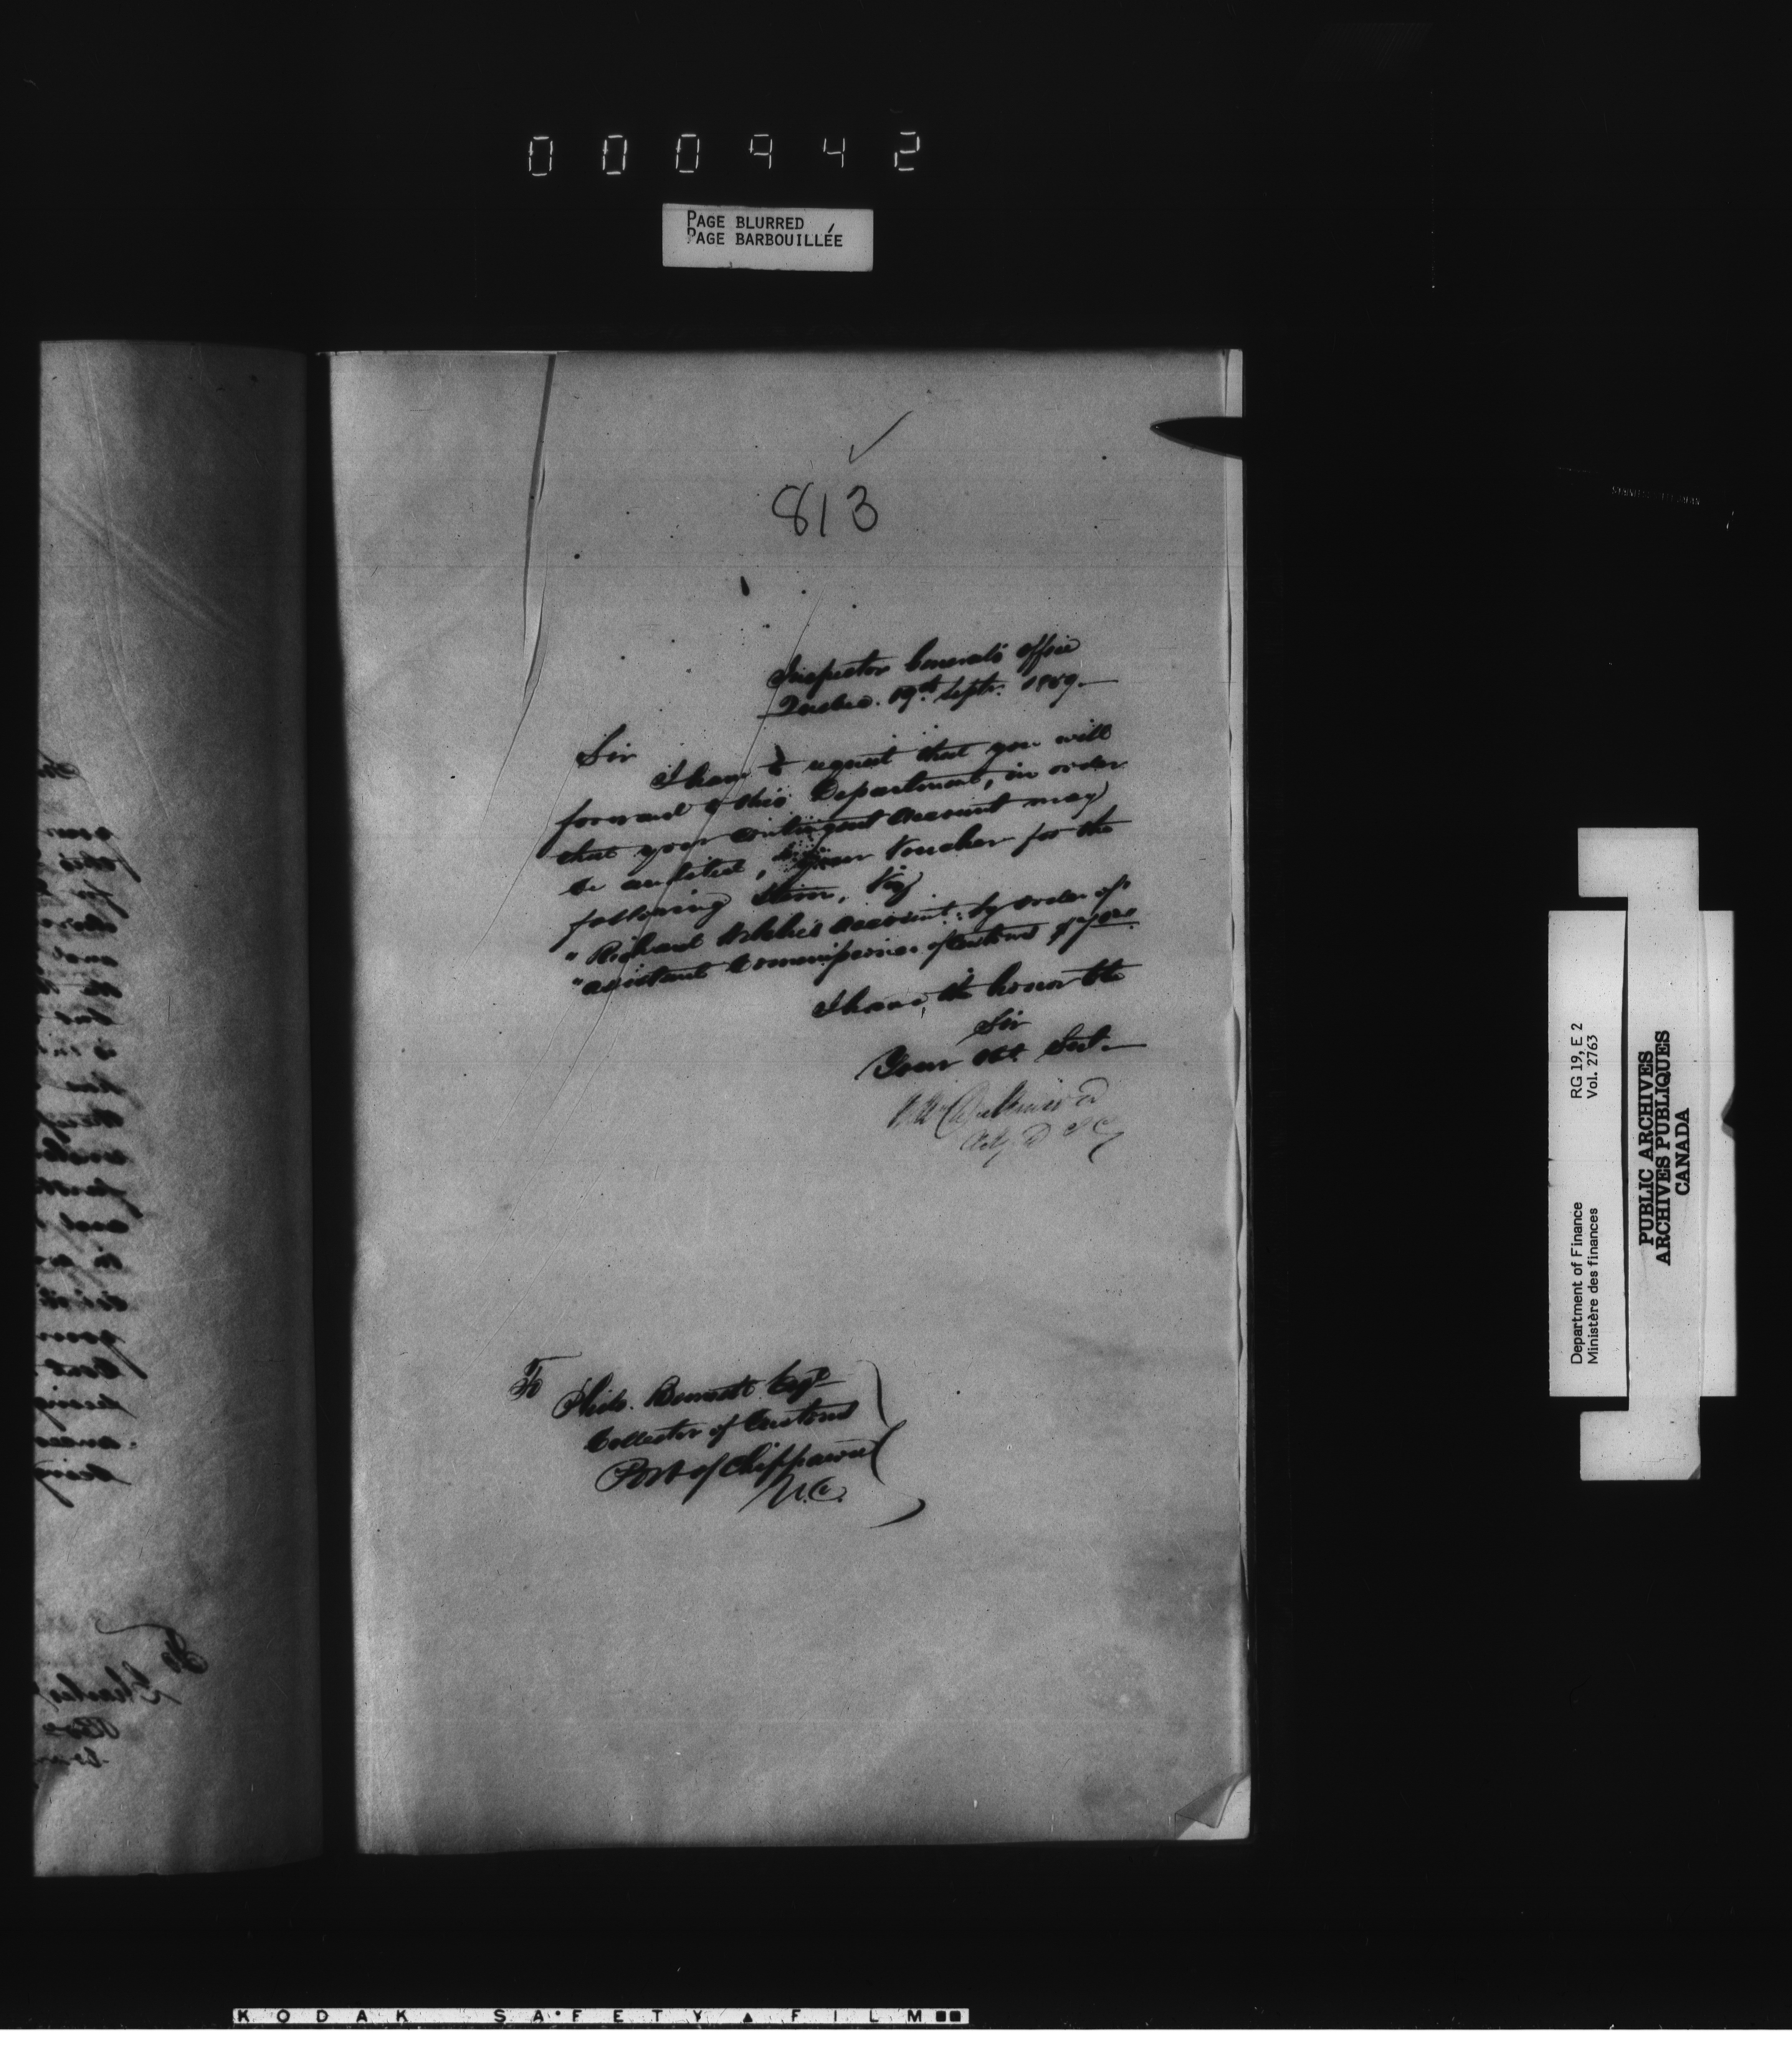 000942
PAGE BLURRED
PAGE BARBOUILLÉE
813
Inspector General's Office
Quebec. 19th Septr. 1859.
Sir
I have to request that you will
forward to this Department, in order
that your contingent account may
be audited, Voucher for the
following Item, Viz
"Richard account: by order of
"assistant Commissioner of Customs
I have the honor to be
Sir
Your Obt. Servt.
To
Bennett Esqr.
Collector of Customs
Port of Chippawa
U.C.
RG 19, E 2
Vol. 2763
Department of Finance
Ministère des finances
PUBLIC ARCHIVES
ARCHIVES PUBLIQUES
CANADA
KODAK SAFETY FILM